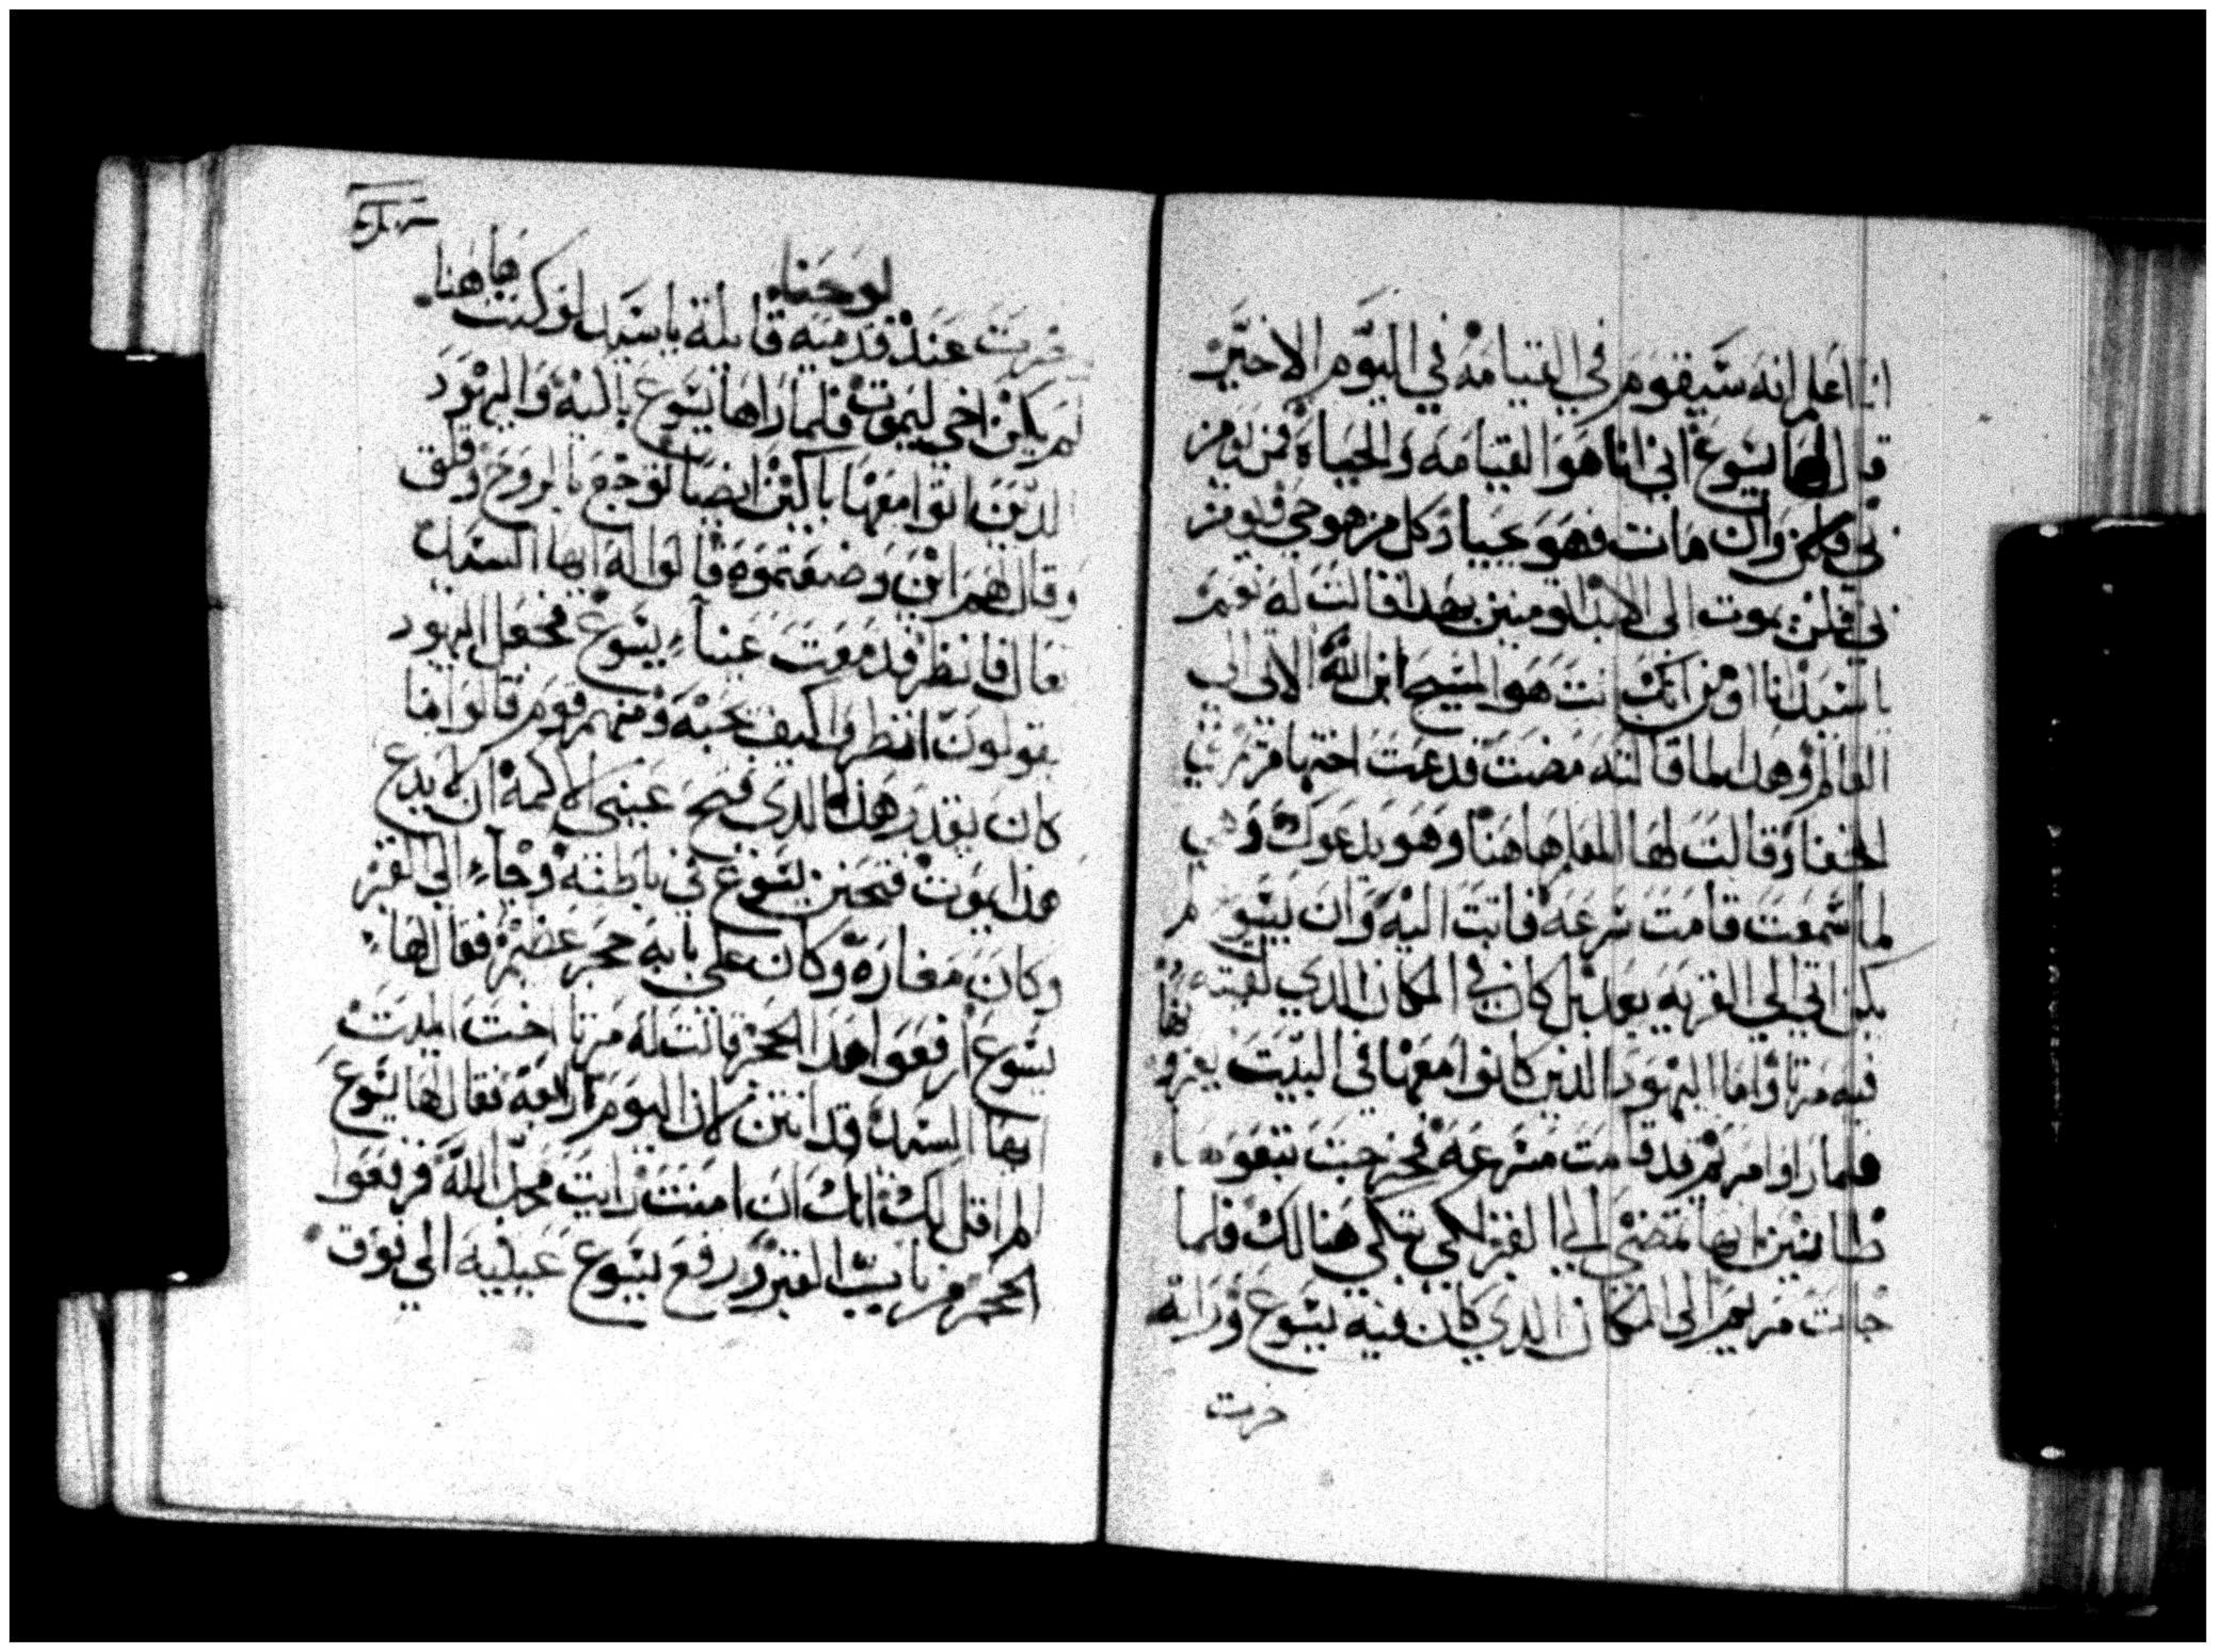 انا اعلم انه سيقوم في القيامه في اليوم الاخير
قال لها يسوع اني انا هو القيامه والحياة فمن يومن
بي وان مات فهو يحيا وكل من هو حي فيومن
بي فلن يموت الى الابد اتومنين بهدا قالت له نعم
يا سيد انا اومن انك انت هو المسيح ابن الله الاتي الى
العالم وهدا لما قالته مضت فدعت اختها مريم
الخفا وقالت لها المعلم هاهنا وهو يدعوك وهي
لما سمعت قامت سرعه فاتت اليه وان يسوع لم
يكن اتى الى القريه بعد بل كان في المكان الدي لقيته
فيه مرتا واما اليهود الدين كانوا معها في البيت يعزونها
فلما راوا مريم قد قامت مسرعه فخرجت تبعوها
ظانين انها تمضي الى القبر لكي تبكي هنالك فلما
جات مريم الى المكان الدي كان فيه يسوع وراته
خرت
لوحنا
خرت عند قدميه قايلة يا سيد لو كنت هاهنا
لم يكن اخي ليموت فلما راها يسوع باكيه واليهود
الدين اتوا معها باكين ايضا توجع بالروح وقلق
وقال لهم اين وضعتموه قالوا له ايها السيد
تعال فانظر فدمعت عيناء يسوع فجعل اليهود
يقولون انظروا كيف يحبه ومنهم قوم قالوا اما
كان يقدر هدا الدي فتح عيني الاكمه ان لا يدع
هدا يموت فتحنن يسوع في باطنه وجاء الى القبر
وكان مغاره وكان على بابه حجر عضيم فقال لها
يسوع ارفعوا هدا الحجر قالت له مرتا اخت الميت
ايها السيد قد انتن لان اليوم اربعه فقال لها يسوع
الم اقل لك انك ان امنت رايت مجد الله فرفعوا
الحجر من باب القبر ورفع يسوع عينيه الى فوق